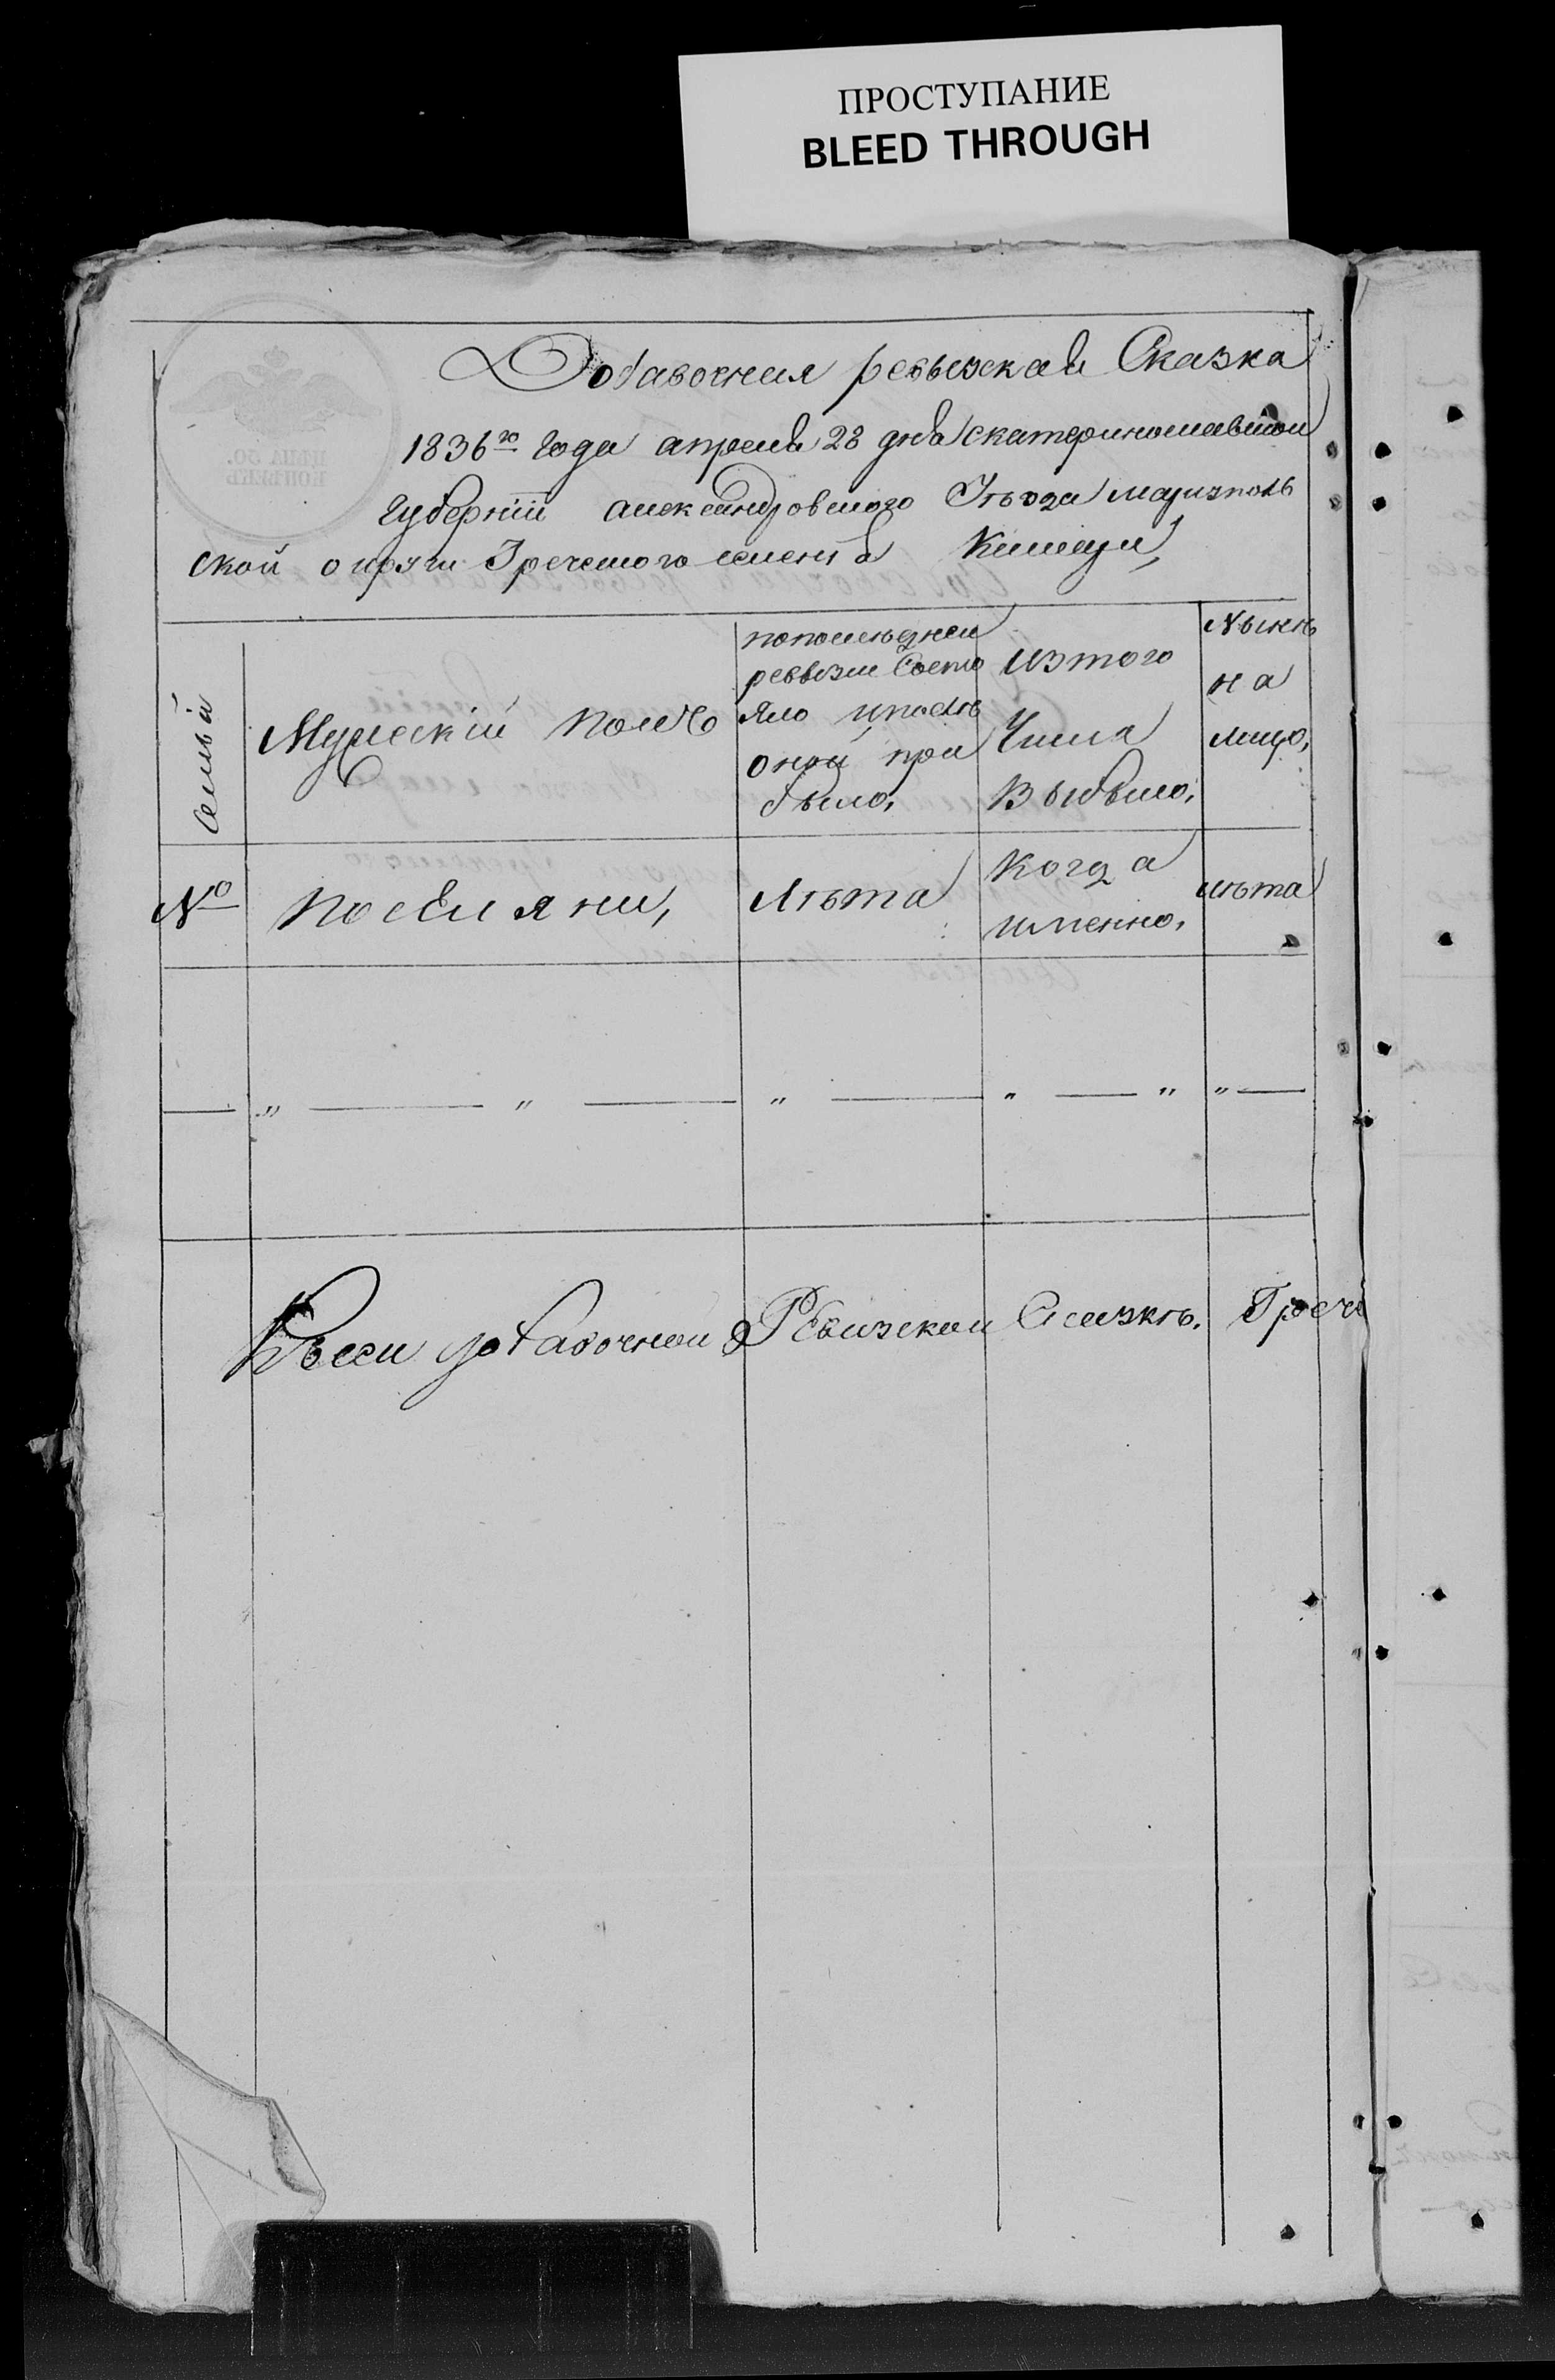 ПРОСТУПАНИЕ
BLEED THROUGH
Добавочная ревызская Сказка
1836го Года апреля 28 дня Екатеринославской
Губернiи александровского Уезда мариуполь
ской округи Греческого селенія
Семьи
Мужескiй полъ
попоследней
ревызiи Состо
яло ипослѣ
оной при
было,
изтого
Числа
Выбыло,
Нынѣ
на
лицо,
№
поселяни,
Лѣта
Когда
именно.
лѣта
" " " " " "
Ксеи добавочной Ревизской Сказкѣ. Грече
ЦѢНА 50.
КОПѢЕКЪ